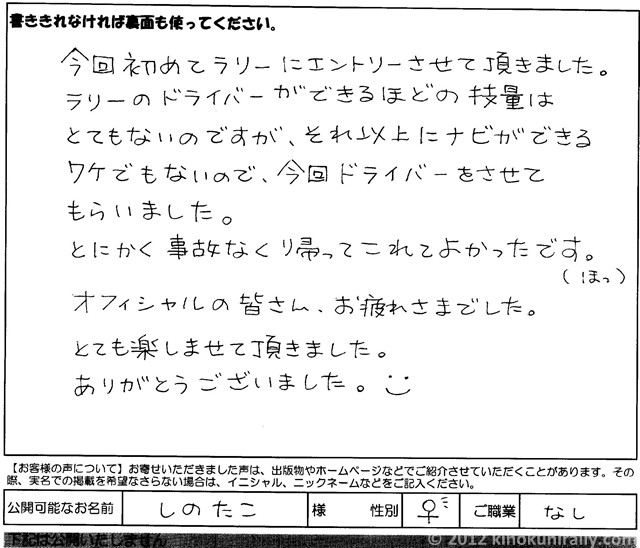 書ききれなければ裏面も使ってください。
今回初めてラリーにエントリーさせて頂きました。
ラリーのドライバーができるほどの技量は
とてもないのですが、それ以上にナビができる
ワケでもないので、今回ドライバーをさせて
もらいました。
とにかく事故なくり帰ってこれてよかったです。
(ほっ)
オフィシャルの皆さん、お疲れさまでした。
とても楽しませて頂きました。
ありがとうございました。
【お客様の声について】お寄せいただきました声は、出版物やホームページなどでご紹介させていただくことがあります。その
際、実名での掲載を希望なさらない場合は、イニシャル、ニックネームなどをご記入ください。
公開可能なお名前 しのたこ 様 性別 ♀ ご職業 なし
下記は公開いたしません
© 2012 kinokunirally.com